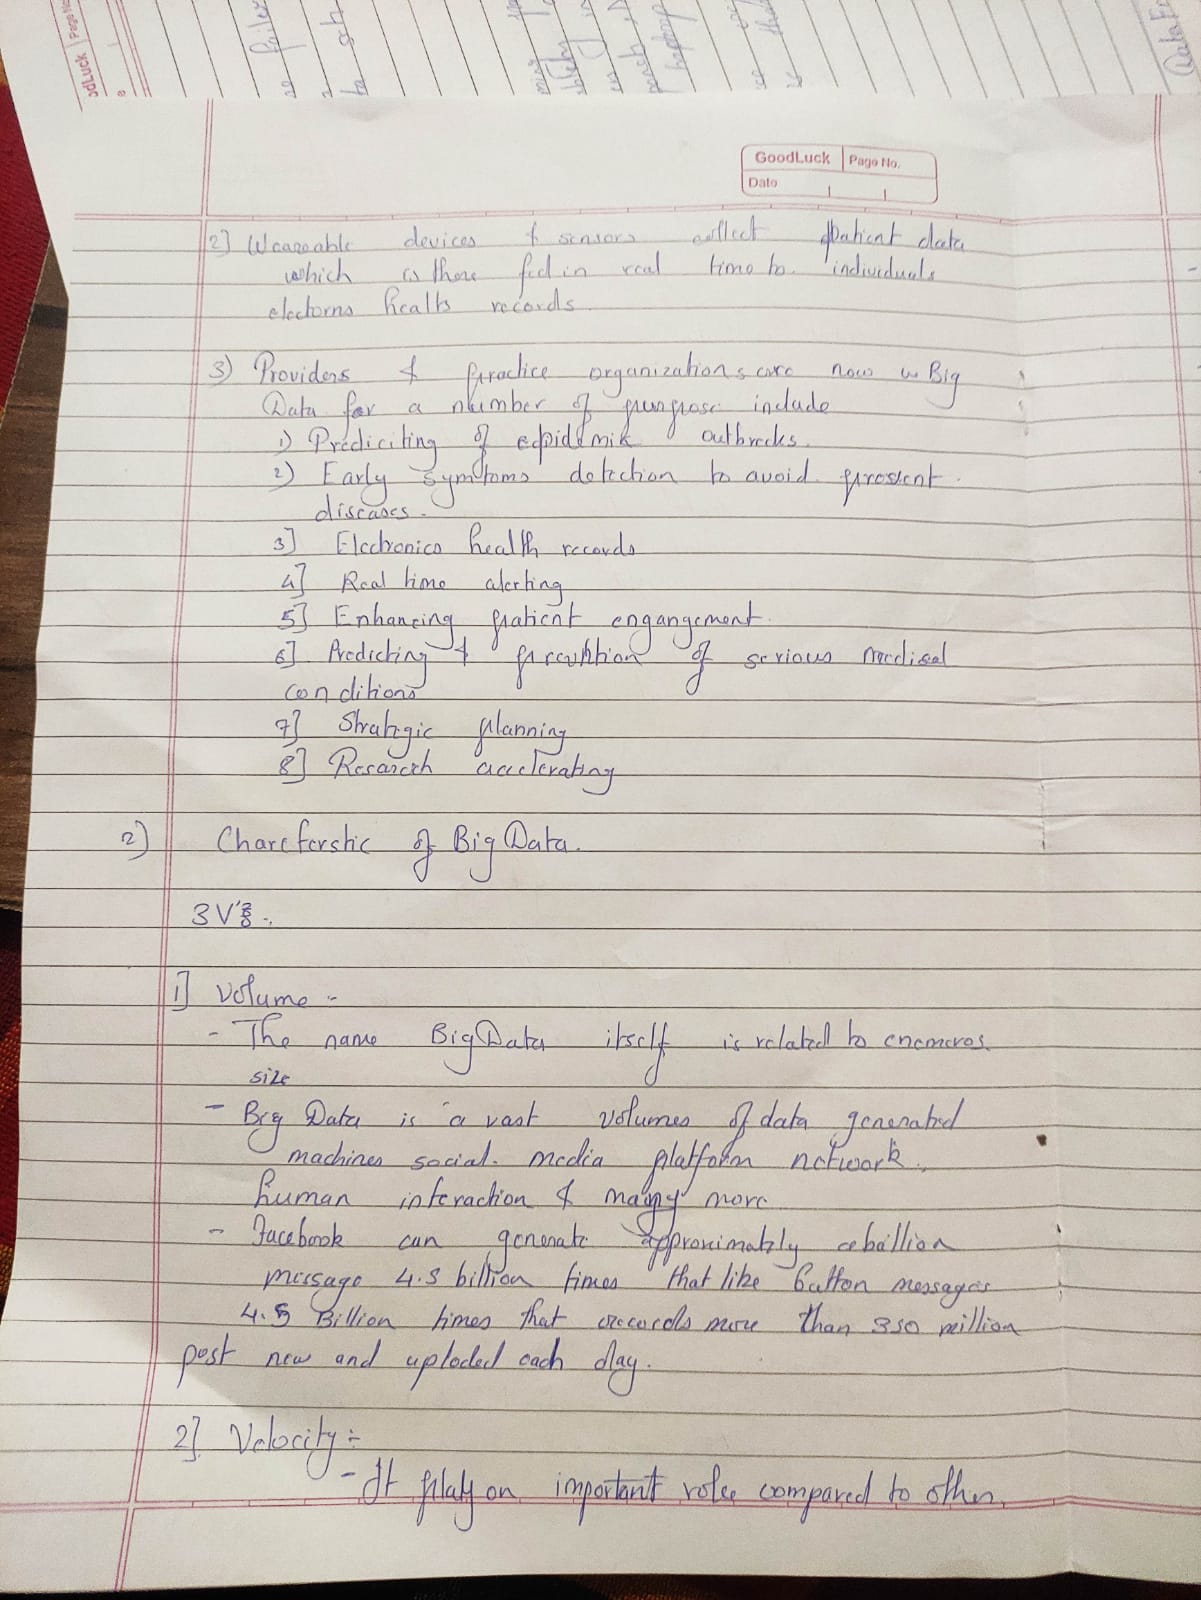 GoodLuck Page No.
Date
2] Weareable devices & sensors collect patient data
which is there fed in real time to individuals
electorns healts records
3) Providers & practice organizations are now in Big
Data for a number of purpose include
1) Prediciting of epidemik outbrecks.
2) Early symtoms detection to avoid present
diseases.
3] Electronics health records
4] Real time alerting
5] Enhancing patient engangement.
6] Predicting & of serious medical
conditions
7] Strategic planning
8] Research accelerating
2) of Big Data.
3V's :-
1] Volume :-
- The name Big Data itself is related to
size
- Big Data is a vast volumes of data generated
machines social media platform network,
human interaction & many more
- Facebook can generate approximately a billion
message 4.5 billion times that like button messages
4.5 Billion times that records more than 350 million
post new and uploded each day.
2] Velocity :-
- It play on important role compared to other